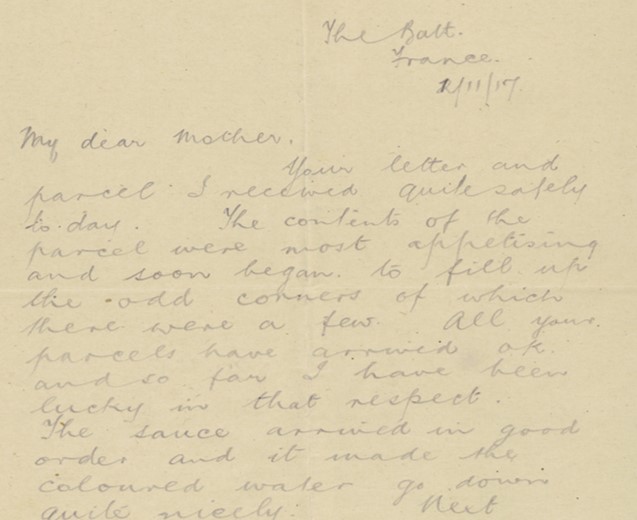 The Batt.
France.
2/11/17.
My dear Mother.
Your letter and
parcel I received quite safely
to-day. The contents of the
parcel were most appetising
and soon began to fill up
the odd corners of which
there were a few. All your
parcels have arrived ok.
and so far I have been
lucky in that respect.
The sauce arrived in good
order and it made the
coloured water go down
quite nicely. Next